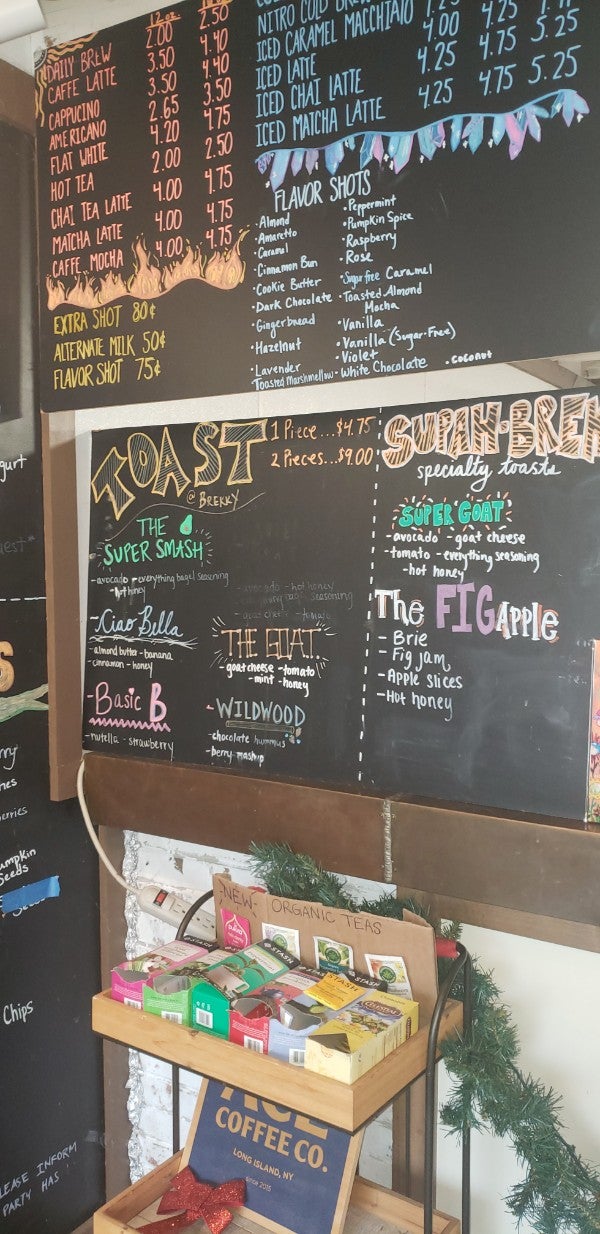 12 oz.
DAILY BREW 2.00 2.50
CAFFE LATTE 3.50 4.40
CAPPUCINO 3.50 4.40
AMERICANO 2.65 3.50
FLAT WHITE 4.20 4.75
HOT TEA 2.00 2.50
CHAI TEA LATTE 4.00 4.75
MATCHA LATTE 4.00 4.75
CAFFE MOCHA 4.00 4.75
EXTRA SHOT 80¢
ALTERNATE MILK 50¢
FLAVOR SHOT 75¢
NITRO COLD
ICED CARAMEL MACCHIATO
ICED LATTE
ICED CHAI LATTE 4.25 4.75 5.25
ICED MATCHA LATTE 4.25 4.75 5.25
FLAVOR SHOTS
• Almond
• Amaretto
• Caramel
• Cinnamon Bun
• Cookie Butter
• Dark Chocolate
• Gingerbread
• Hazelnut
• Lavender
Toasted Marshmellow
• Peppermint
• Pumpkin Spice
• Raspberry
• Rose
• Sugar free Caramel
• Toasted Almond
Mocha
• Vanilla
• Vanilla (Sugar-Free)
• Violet
- White Chocolate
• Coconut
TOAST
@ BREKKY
1 Piece...$4.75
2 Pieces...$9.00
THE
SUPER SMASH
- avocado - everything bagel seasoning
- hot honey
- Ciao Bella
- almond butter - banana
cinnamon - honey
- Basic B
- nutella - strawberry
THE GOAT
- goat cheese - tomato
- mint - honey
- WILDWOOD
- chocolate hummus
- berry mashup
SUPAH-BREK
specialty toasts
SUPER GOAT
- avocado - goat cheese
- tomato - everything seasoning
- hot honey
The FIG APPLE
- Brie
- Fig jam
- Apple slices
- Hot honey
Chips
LEASE INFORM
PARTY HAS
-NEW-
ORGANIC TEAS
STASH
STASH
STASH
STASH
COFFEE CO.
LONG ISLAND, NY
since 2015